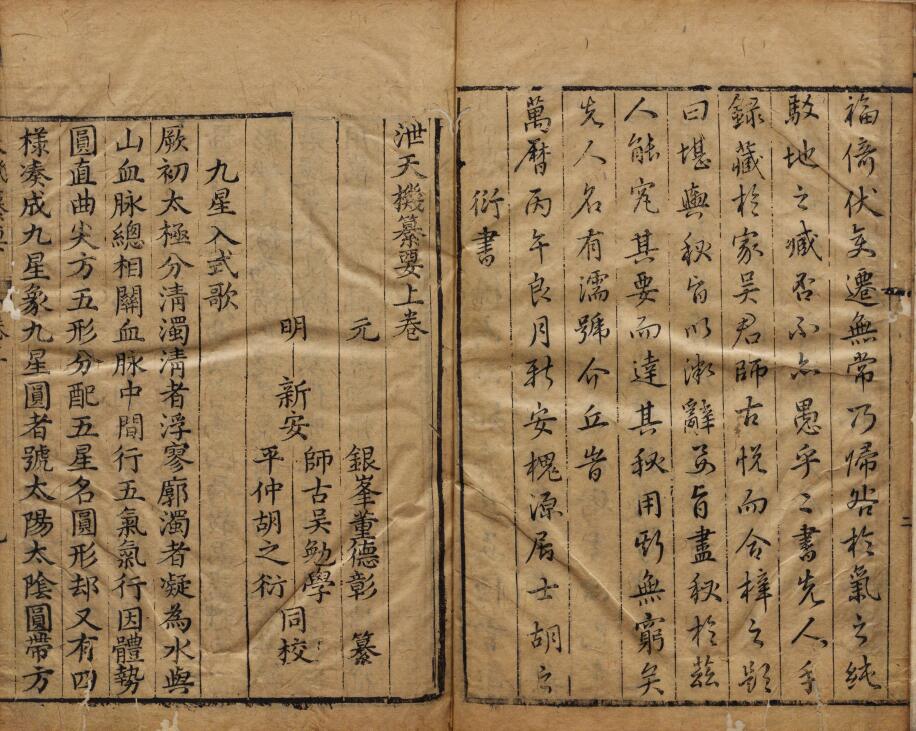 福倚伏矣遷無常乃歸咎於氣之純
駁地之臧否不亦愚乎二書先人手
錄藏於家吳君師古悅而合梓之題
曰堪輿秘旨以漱辭安旨盡秘於茲
人能究其要而達其秘用斯無窮矣
先人名有濡號介丘旹
萬曆丙午良月新安槐源居士胡之
衍書
泄天機纂要上卷
元 銀峯董德彰 纂
明 新安 師古吳勉學
平仲胡之衍 同校
九星入式歌
厥初太極分清濁清者浮寥廓濁者凝為水與
山血脉總相關血脉中間行五氣氣行因體勢
圓直曲尖方五形分配五星名圓形却又有四
樣湊成九星象九星圓者號太陽太陰圓帶方